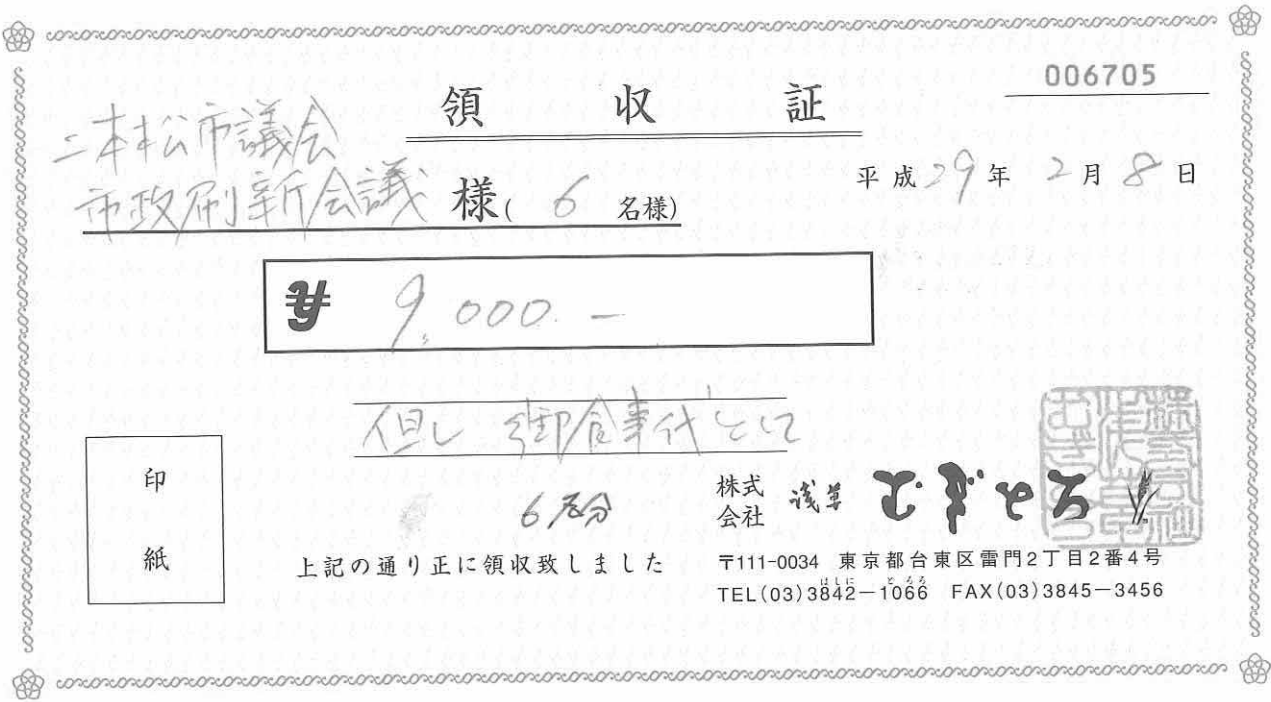 006705
領収証
二本松市議会
市政刷新会議 様(6名様)
平成29年2月8日
¥ 9,000.-
但し 御食事代として
6名分
印紙
上記の通り正に領収致しました
株式会社 浅草 むぎとろ
〒111-0034 東京都台東区雷門2丁目2番4号
はしに とろろ
TEL(03)3842-1066 FAX(03)3845-3456